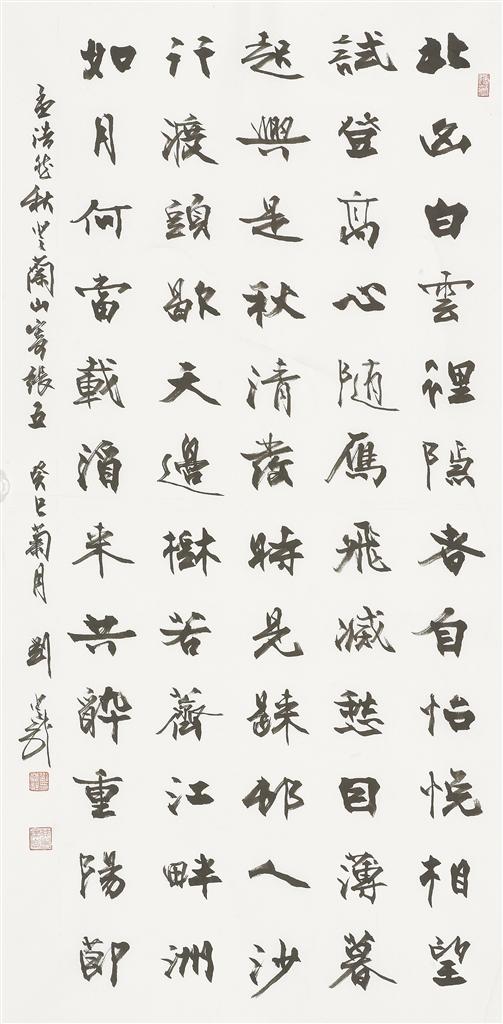 北山白雲裡隱者自怡悅相望
試登高心随雁飛滅愁因薄暮
起興是秋清發時見歸邨人沙
行渡頭歇天邊樹若薺江畔洲
如月何當載酒来共醉重陽節
孟浩然秋登蘭山寄張五 癸巳菊月 劉